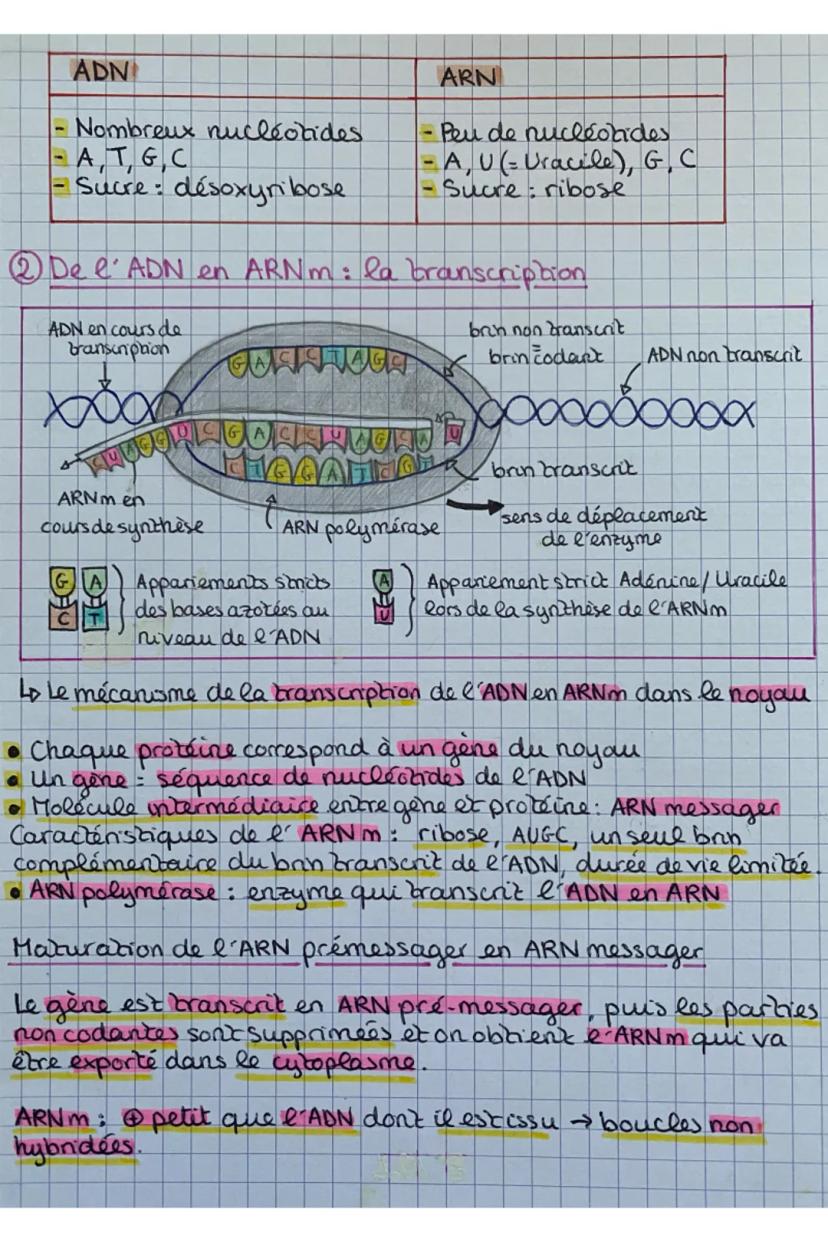 ADN
ARN
- Nombreux nucléotides
- A, T, G, C
- Sucre : désoxyribose
- Peu de nucléotides
- A, U (= Uracile), G, C
- Sucre : ribose
② De l'ADN en ARNm : la transcription
ADN en cours de
transcription
brin non transcrit
=
brin codant
ADN non transcrit
G A C C T A G C
C U A G G U C G A C C U A G C A U
C T G G A T C G T
brin transcrit
ARNm en
cours de synthèse
ARN polymérase
sens de déplacement
de l'enzyme
G A
C T
Appariements stricts
des bases azotées au
niveau de l'ADN
A
U
Appariement strict Adénine / Uracile
lors de la synthèse de l'ARNm
↳ Le mécanisme de la transcription de l'ADN en ARNm dans le noyau
• Chaque protéine correspond à un gène du noyau
• Un gène = séquence de nucléotides de l'ADN
• Molécule intermédiaire entre gène et protéine : ARN messager
Caractéristiques de l'ARNm : ribose, AUGC, un seul brin
complémentaire du brin transcrit de l'ADN, durée de vie limitée.
• ARN polymérase : enzyme qui transcrit l'ADN en ARN
Maturation de l'ARN prémessager en ARN messager
Le gène est transcrit en ARN pré-messager, puis les parties
non codantes sont supprimées et on obtient l'ARNm qui va
être exporté dans le cytoplasme.
ARNm : ⊕ petit que l'ADN dont il est issu → boucles non
hybridées.